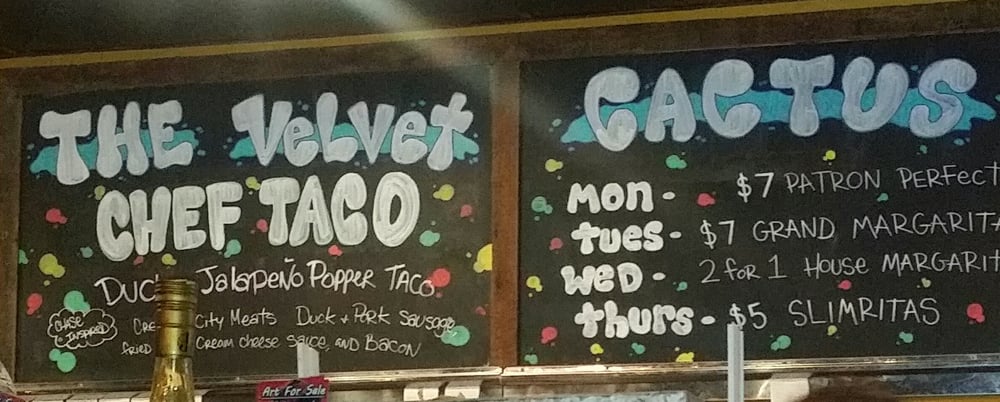 THE VELVET
CHEF TACO
JALAPEÑO POPPER TACO
CHASE
INSPIRED
City Meats Duck + Pork Sausage
fried Cream cheese sauce, AND BACON
Art For Sale
CACTUS
mon - $7 PATRON PERFECT
tues - $7 GRAND MARGARITA
WED - 2 for 1 HOUSE MARGARIT
thurs - $5 SLIMRITAS